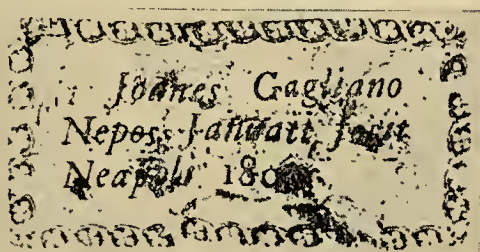 Joanes Gagliano
Nepos Januarii fecit
Neapoli 180